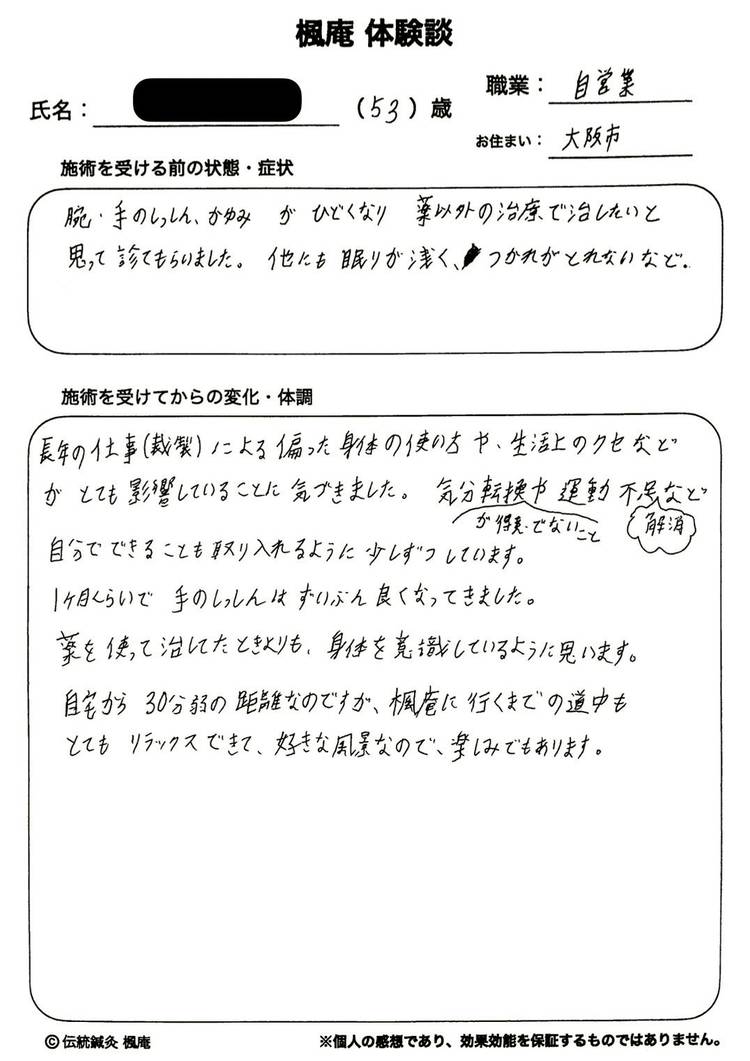 楓庵 体験談
職業： 自営業
氏名： （53）歳
お住まい： 大阪市
施術を受ける前の状態・症状
腕・手のしっしん、かゆみ が ひどくなり 薬以外の治療で治したいと
思って 診てもらいました。 他にも 眠りが浅く、つかれがとれないなど。
施術を受けてからの変化・体調
長年の仕事(裁製)による偏った身体の使い方や、生活上のクセなど
が とても 影響していることに 気づきました。 気分転換や 運動 不足など
が得意でないこと 解消
自分でできることも取り入れるように 少しずつしています。
1ヶ月くらいで 手のしっしんは ずいぶん 良くなってきました。
薬を使って治してたときよりも、身体を意識しているように思います。
自宅から 30分弱の 距離なのですが、楓庵に 行くまでの道中も
とても リラックスできて、好きな風景なので、楽しみでもあります。
©伝統鍼灸 楓庵
※個人の感想であり、効果効能を保証するものではありません。